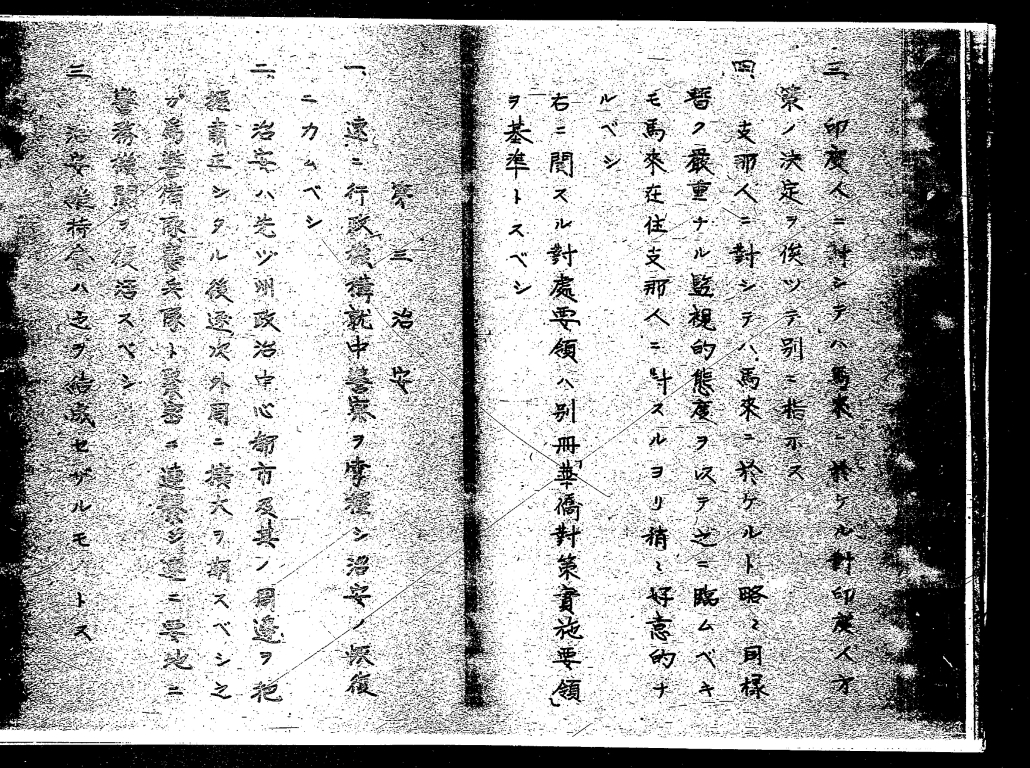 三、印度人ニ對シテハ馬來ニ於ケル對印度人方
策ノ決定ヲ俟ツテ別ニ指示ス
四、支那人ニ對シテハ馬來ニ於ケルト略々同樣
暫ク嚴重ナル監視的態度ヲ以テ之ニ臨ムベキ
モ馬來在住支那人ニ對スルヨリ稍々好意的ナ
ルベシ
右ニ關スル對處要領ハ別冊「華僑對策實施要領」
ヲ基準トスベシ
第三 治安
一、速ニ行政機構就中警察ヲ掌握シ治安ノ恢復
ニカムベシ
二、治安ハ先ヅ州政治中心都市及其ノ周邊ヲ把
握肅正シタル後逐次外周ニ擴大ヲ期スベシ之
ガ爲警備隊憲兵隊ト緊密ニ連繫シ速ニ要地ニ
警務機關ヲ復活スベシ
三、治安維持會ハ之ヲ結成セザルモノトス